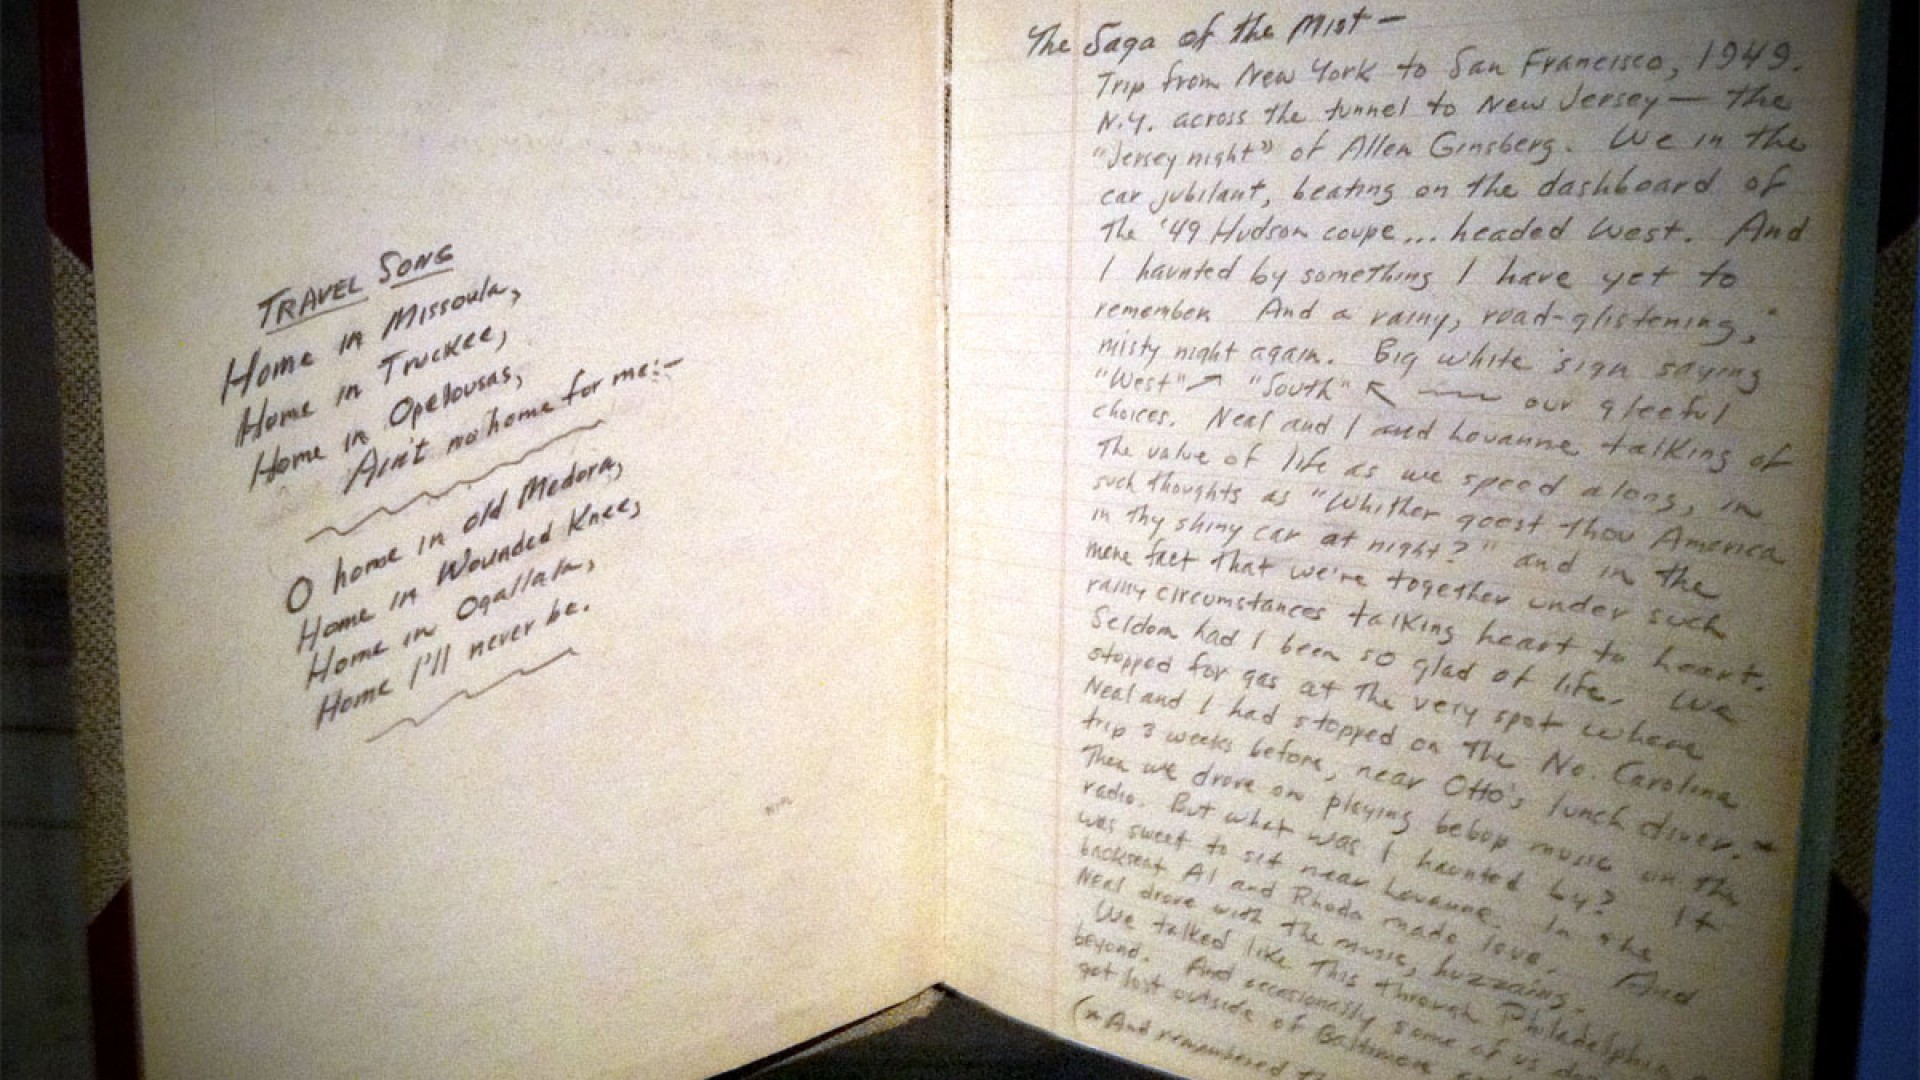 TRAVEL SONG
Home in Missoula,
Home in Truckee,
Home in Opelousas,
Ain't no home for me:-
O home in old Medora,
Home in Wounded Knee,
Home in Ogallala,
Home I'll never be.
The Saga of the Mist —
Trip from New York to San Francisco, 1949.
N.Y. across the tunnel to New Jersey — the
"Jersey night" of Allen Ginsberg. We in the
car jubilant, beating on the dashboard of
the '49 Hudson coupe... headed West. And
I haunted by something I have yet to
remember. And a rainy, road-glistening,
misty night again. Big white sign saying
"West" ↗ "South" ↖ — our gleeful
choices. Neal and I and Louanne talking of
the value of life as we speed along, in
such thoughts as "Whither goest thou America
in thy shiny car at night?" and in the
mere fact that we're together under such
rainy circumstances talking heart to heart.
Seldom had I been so glad of life. We
stopped for gas at the very spot where
Neal and I had stopped on the No. Carolina
trip 3 weeks before, near Otto's lunch diner.
Then we drove on playing bebop music on the
radio. But what was I haunted by? It
was sweet to sit near Louanne. In the
backseat Al and Rhoda made love. And
Neal drove with the music, huzzaing.
We talked like this through Philadelphia
beyond. And occasionally some of us
got lost outside of Baltimore
(* And remembered